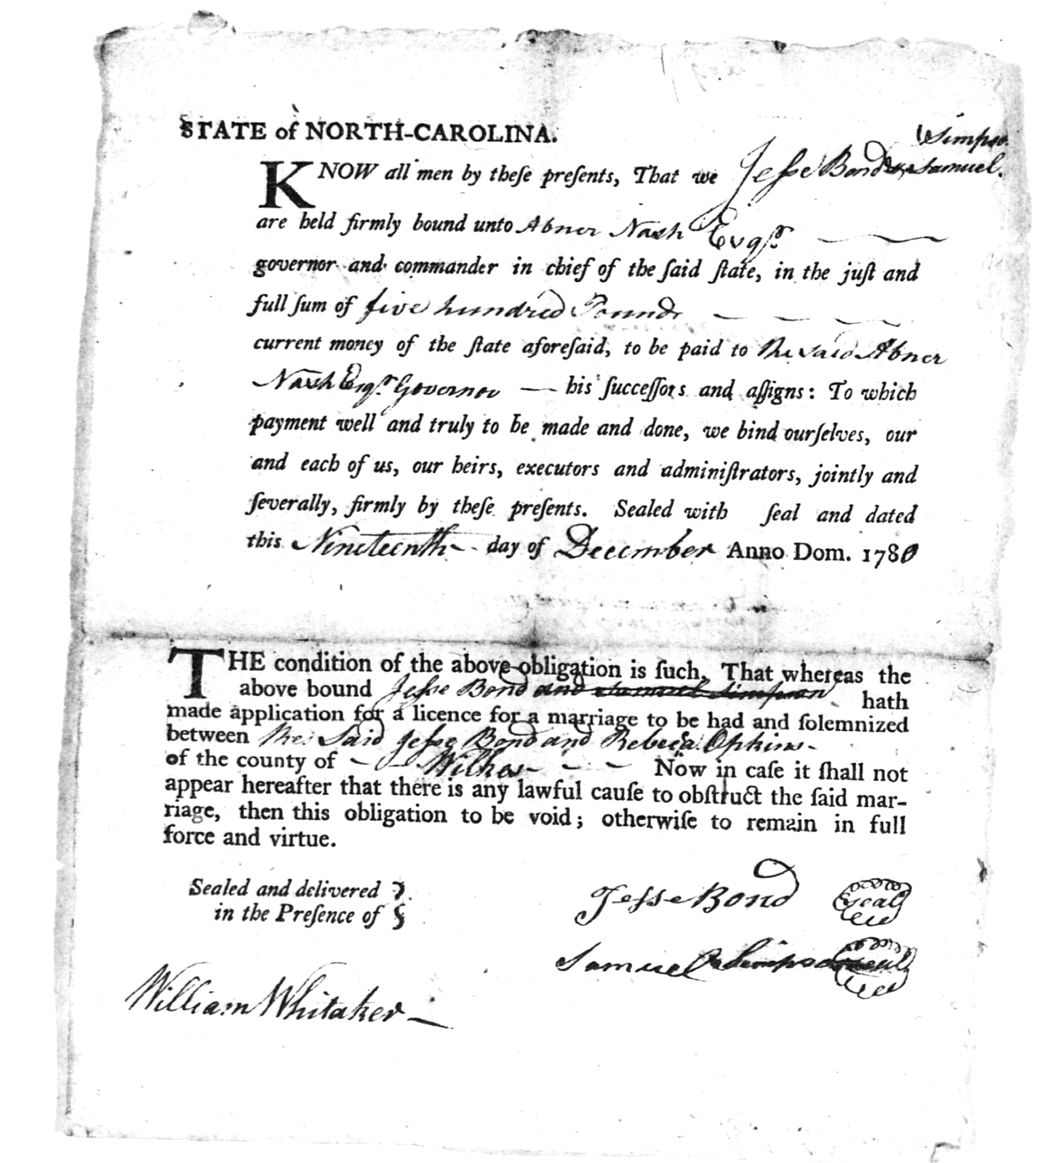 STATE of NORTH-CAROLINA.
Simpson
KNOW all men by theſe preſents, That we Jeſse Bond & Samuel
are held firmly bound unto Abner Nash Esqr
governor and commander in chief of the ſaid ſtate, in the juſt and
full ſum of five hundred Pounds
current money of the ſtate aforeſaid, to be paid to the said Abner
Nash Esqr. Governor — his ſucceſſors and aſſigns: To which
payment well and truly to be made and done, we bind ourſelves, our
and each of us, our heirs, executors and adminiſtrators, jointly and
ſeverally, firmly by theſe preſents. Sealed with ſeal and dated
this Nineteenth day of December Anno Dom. 1780
THE condition of the above obligation is ſuch, That whereas the
above bound Jeſse Bond and Samuel Simpson hath
made application for a licence for a marriage to be had and ſolemnized
between the Said Jeſse Bond and Rebeca
of the county of Wilkes Now in caſe it ſhall not
appear hereafter that there is any lawful cauſe to obſtruct the ſaid mar-
riage, then this obligation to be void; otherwiſe to remain in full
force and virtue.
Sealed and delivered
in the Preſence of
Jeſse Bond Seal
Samuel Simpson Seal
William Whitaker